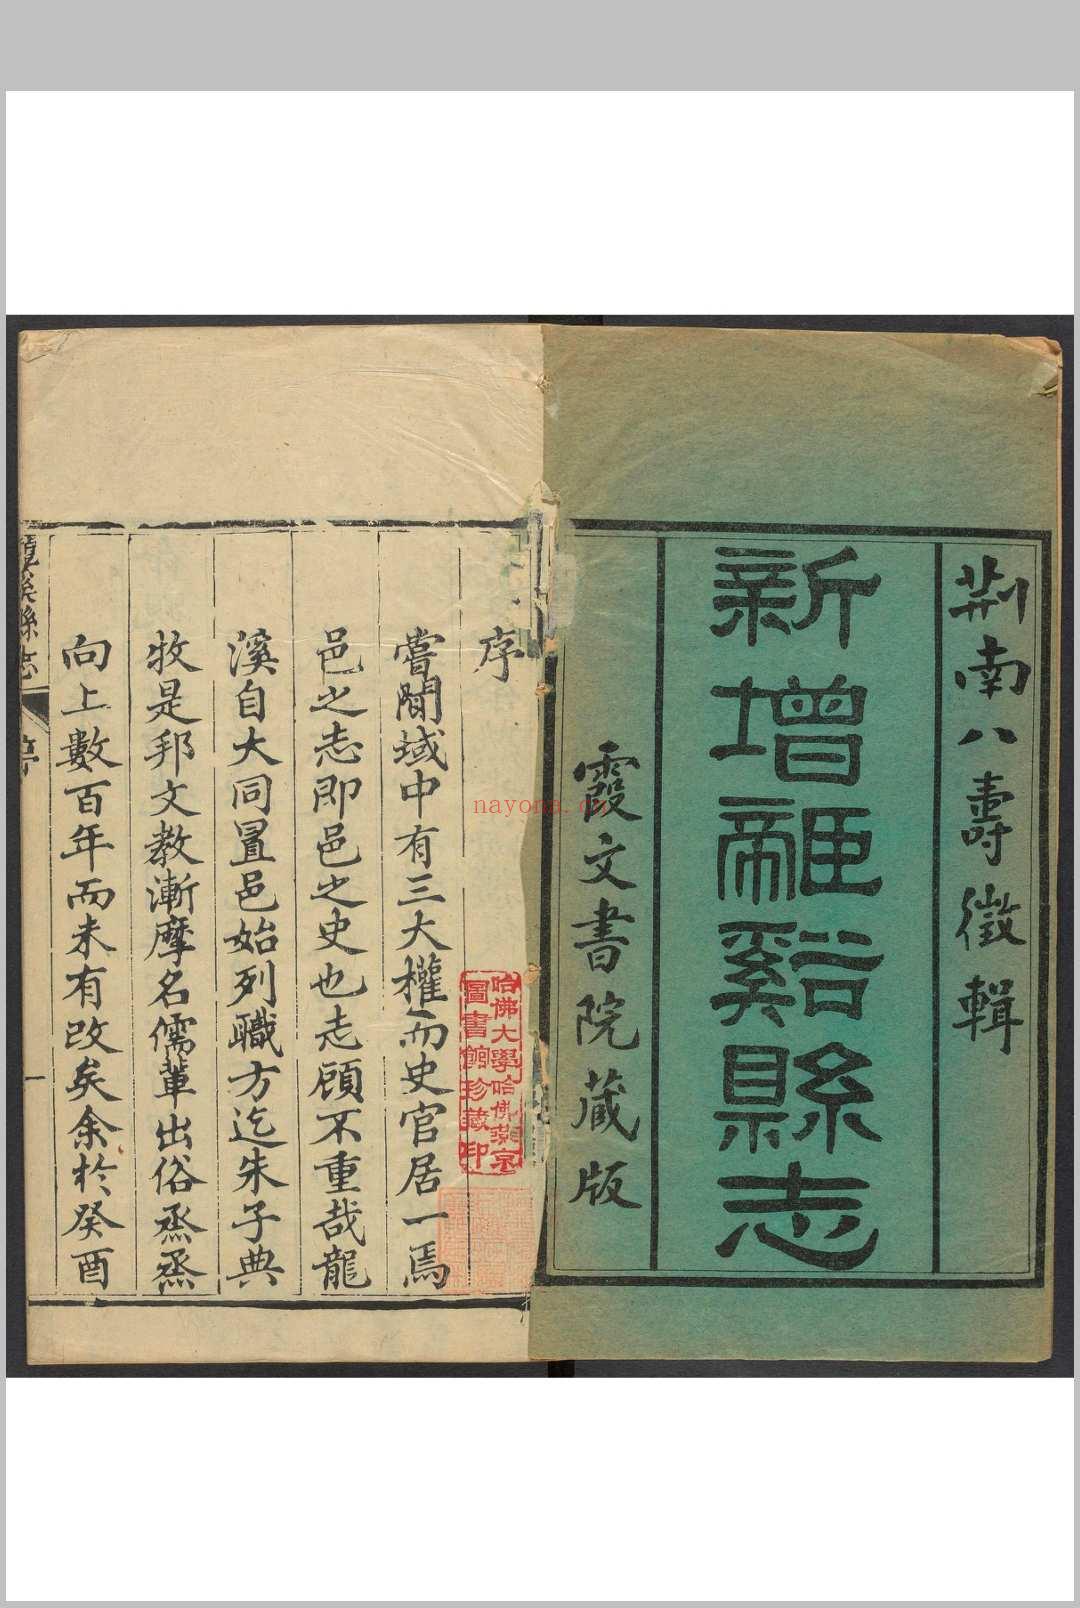 荊南八壽徵輯
新增龍谿縣志
霞文書院藏版
序
哈佛大學哈佛燕京
圖書館珍藏印
嘗聞域中有三大權而史官居一焉
邑之志即邑之史也志顧不重哉龍
溪自大同置邑始列職方迄朱子典
牧是邦文教漸摩名儒輩出俗烝烝
向上數百年而未有改矣余於癸酉
龍溪縣志 序 一
nayona.cn